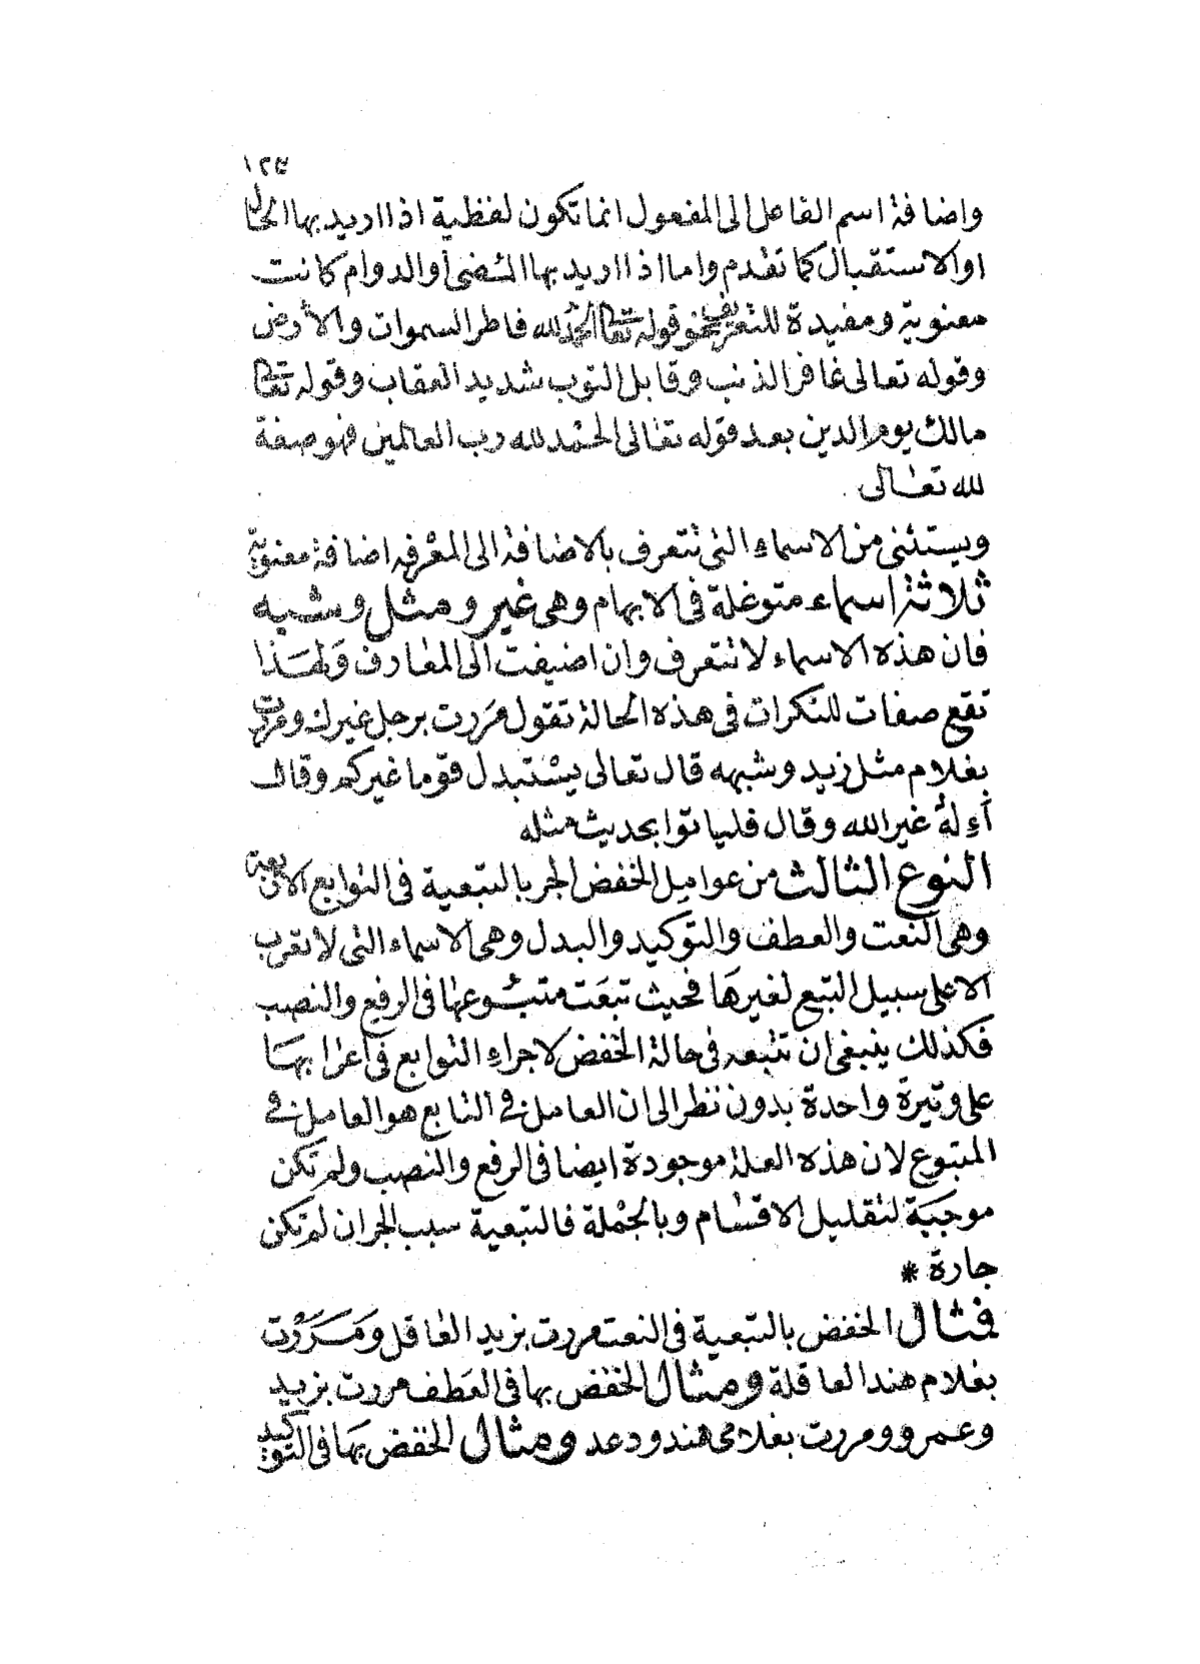 واضافة اسم الفاعل الى المفعول انما تكون لفظية اذا اريد بها الحال
او الاستقبال كما تقدم واما اذا اريد بها المضى أو الدوام كانت
معنوية ومفيدة للتعريف نحو قوله تعالى الحمد لله فاطر السموات والأرض
وقوله تعالى غافر الذنب وقابل التوب شديد العقاب وقوله تعالى
مالك يوم الدين بعد قوله تعالى الحمد لله رب العالمين فهو صفة
لله تعالى
ويستثنى من الاسماء التى تتعرف بالاضافة الى المعرفه اضافة معنوية
ثلاثة اسماء متوغلة فى الابهام وهى غير ومثل وشبه
فان هذه الاسماء لا تتعرف وان اضيفت الى المعارف ولهذا
تقع صفات للنكرات فى هذه الحالة تقول مررت برجل غيرك ومررت
بغلام مثل زيد وشبهه قال تعالى يستبدل قوما غيركم وقال
أءله غير الله وقال فلياتوا بحديث مثله
النوع الثالث من عوامل الخفض الجر بالتبعية فى التوابع الاربعة
وهى النعت والعطف والتوكيد والبدل وهى الاسماء التى لا تعرب
الا على سبيل التبع لغيرها فحيث تبعت متبوعها فى الرفع والنصب
فكذلك ينبغى ان تتبعه فى حالة الخفض لاجراء التوابع فى اعرابها
على وتيرة واحدة بدون نظر الى ان العامل فى التابع هو العامل فى
المتبوع لان هذه العلة موجودة ايضا فى الرفع والنصب ولم تكن
موجبة لتقليل الاقسام وبالجملة فالتبعية سبب الجر ان لم تكن
جارة *
فمثال الخفض بالتبعية فى النعت مررت بزيد العاقل ومررت
بغلام هند العاقلة ومثال الخفض بها فى العطف مررت بزيد
وعمرو ومررت بغلامى هند ودعد ومثال الخفض بها فى التوكيد